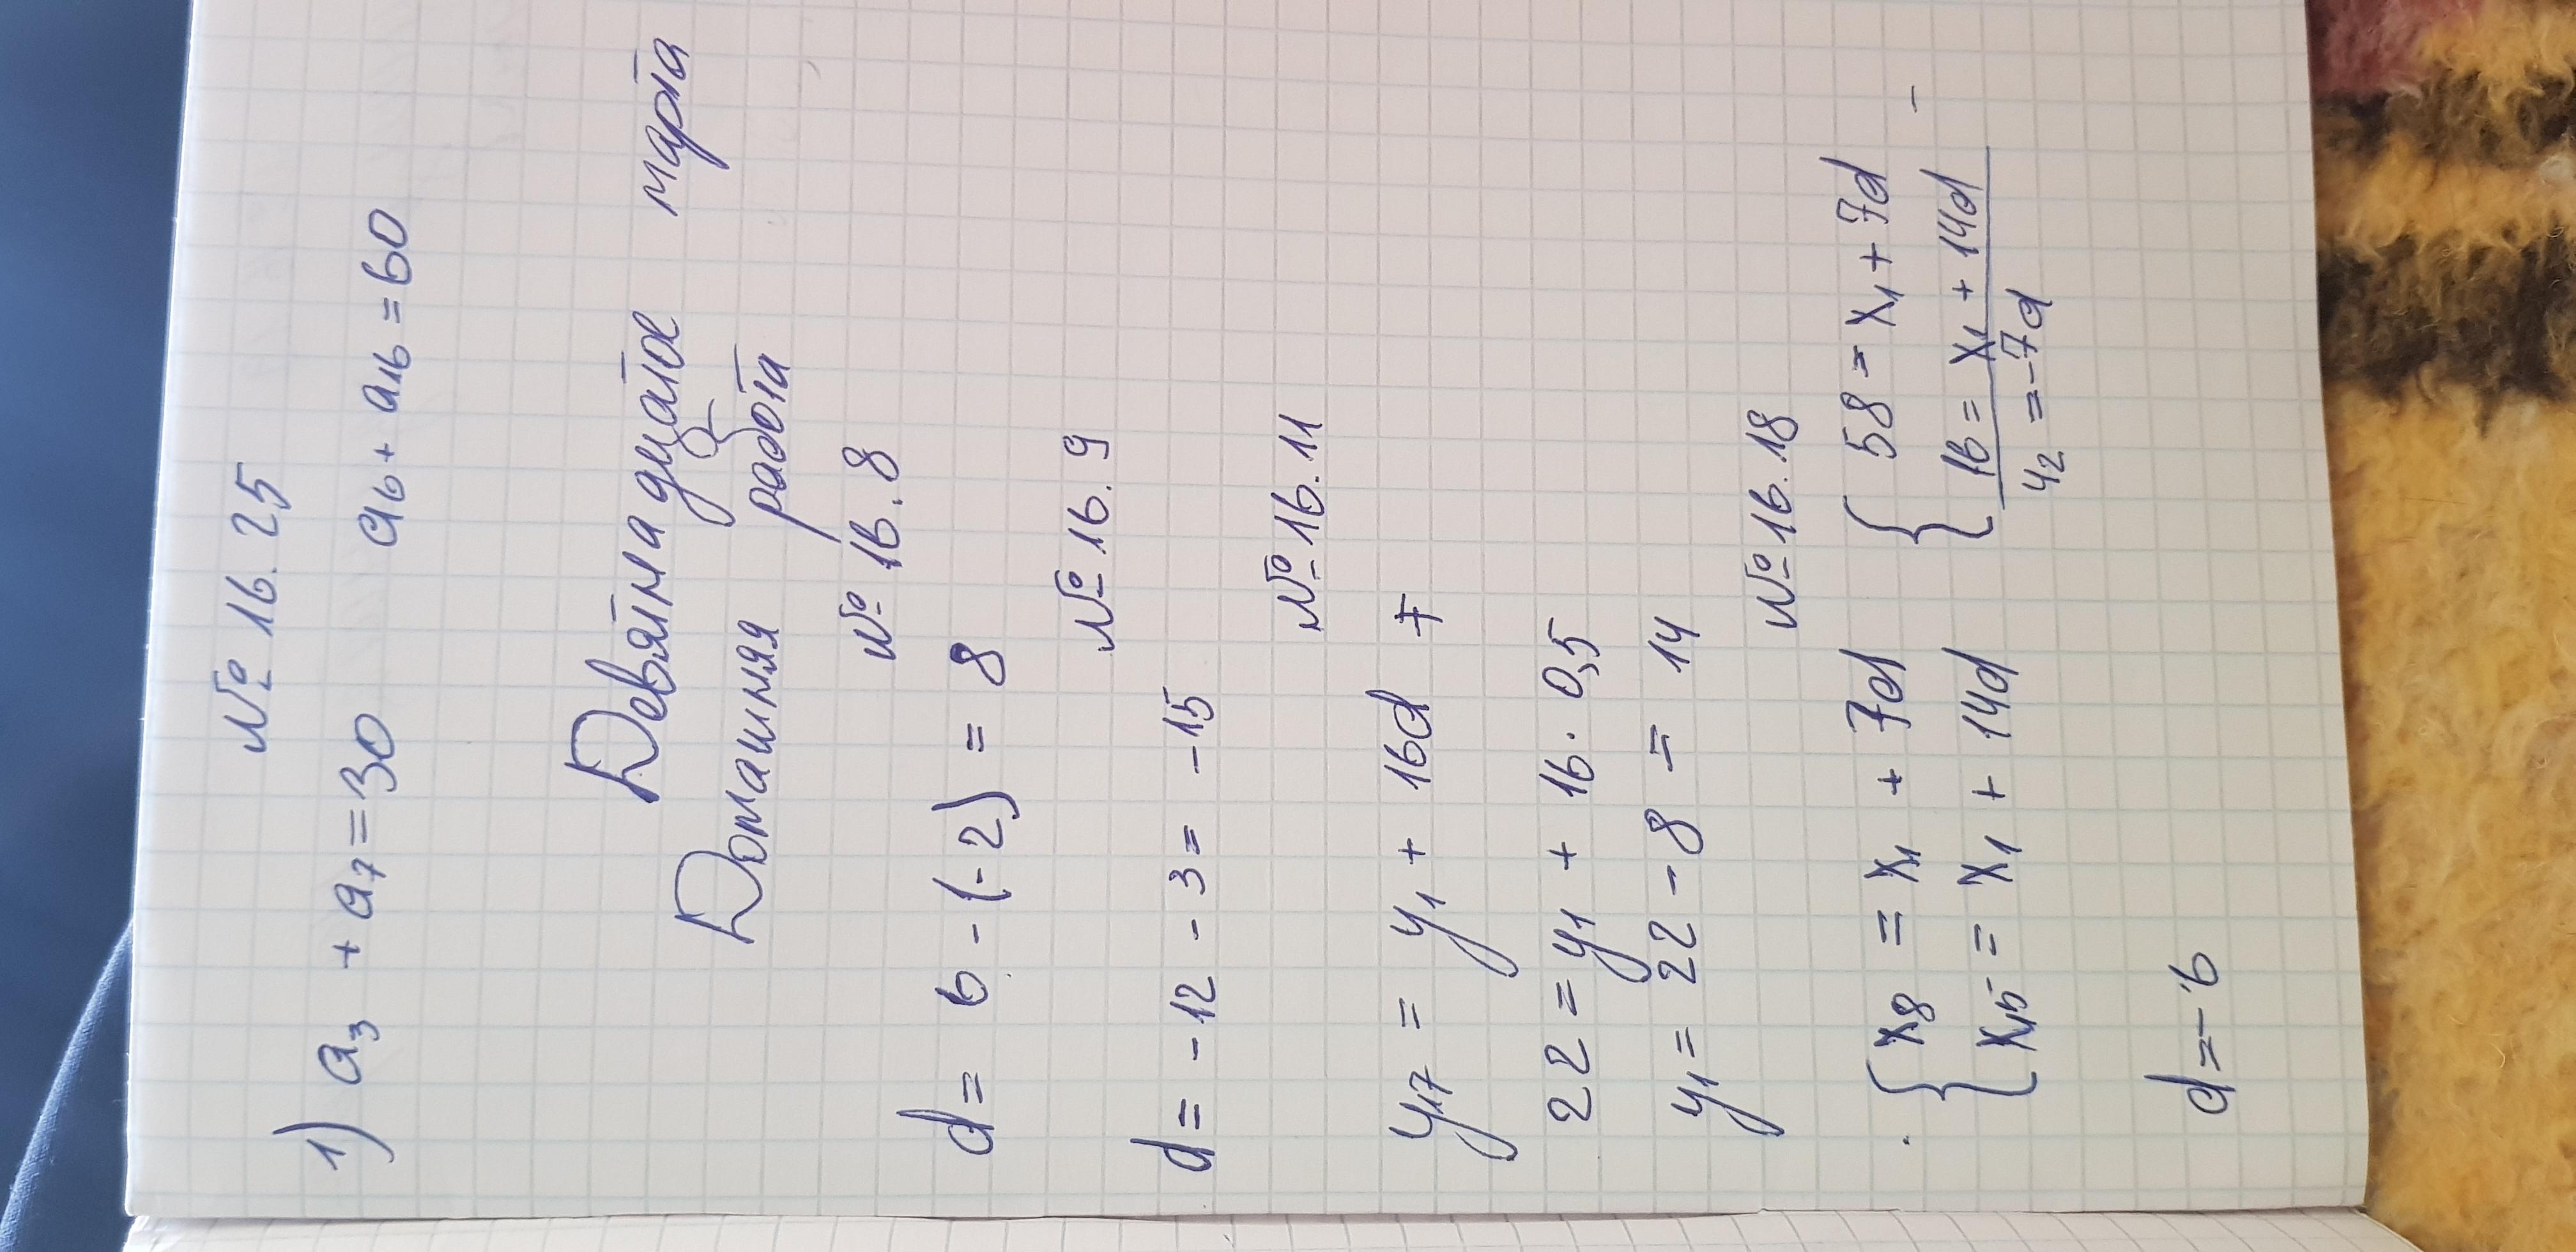 № 16.25
1) a₃ + a₇ = 30 a₆ + a₁₆ = 60
Девятнадцатое марта
Домашняя работа
№ 16.8
d = 6 - (-2) = 8
№ 16.9
d = -12 - 3 = -15
№ 16.11
y₁₇ = y₁ + 16d
22 = y₁ + 16 · 0,5
y₁ = 22 - 8 = 14
№ 16.18
{ x₈ = x₁ + 7d { 58 = x₁ + 7d
{ x₁₅ = x₁ + 14d { 16 = x₁ + 14d -
42 = -7d
d = -6